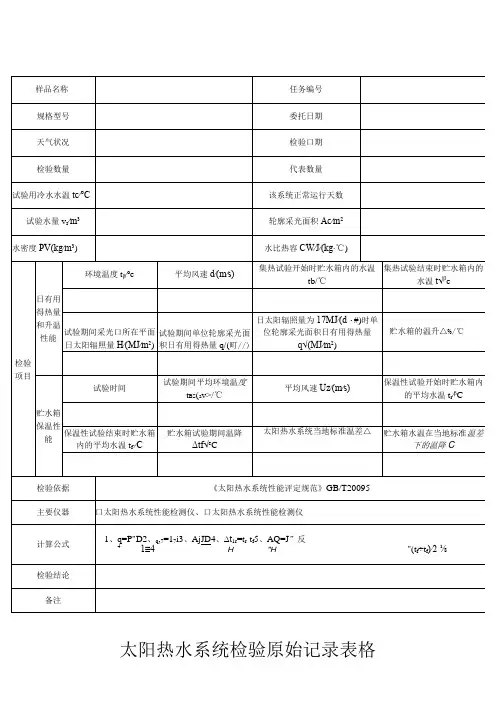 样品名称 任务编号
规格型号 委托日期
天气状况 检验口期
检验数量 代表数量
试验用冷水水温 tc/°C 该系统正常运行天数
试验水量 vs/m³ 轮廓采光面积 Ac/m²
水密度 PV(kg/m³) 水比热容 CW/J/(kg·℃)
检验项目
日有用得热量和升温性能
环境温度 平均风速 d/(m/s) 集热试验开始时贮水箱内的水温 tb/℃ 集热试验结束时贮水箱内的水温
试验期间采光口所在平面日太阳辐照量 H/(MJ/m²) 试验期间单位轮廓采光面积日有用得热量 q/(町//) 日太阳辐照量为 17MJ/(d·#)时单位轮廓采光面积日有用得热量 q√(MJ/m²) 贮水箱的温升△/℃
贮水箱保温性能
试验时间 试验期间平均环境温度 平均风速 Uz/(m/s) 保温性试验开始时贮水箱内的平均水温
保温性试验结束时贮水箱内的平均水温 贮水箱试验期间温降 太阳热水系统当地标准温差△ 贮水箱水温在当地标准温差下的温降 C
检验依据 《太阳热水系统性能评定规范》GB/T20095
主要仪器 口太阳热水系统性能检测仪、口太阳热水系统性能检测仪
计算公式 1、q=P"D2、
检验结论
备注
太阳热水系统检验原始记录表格